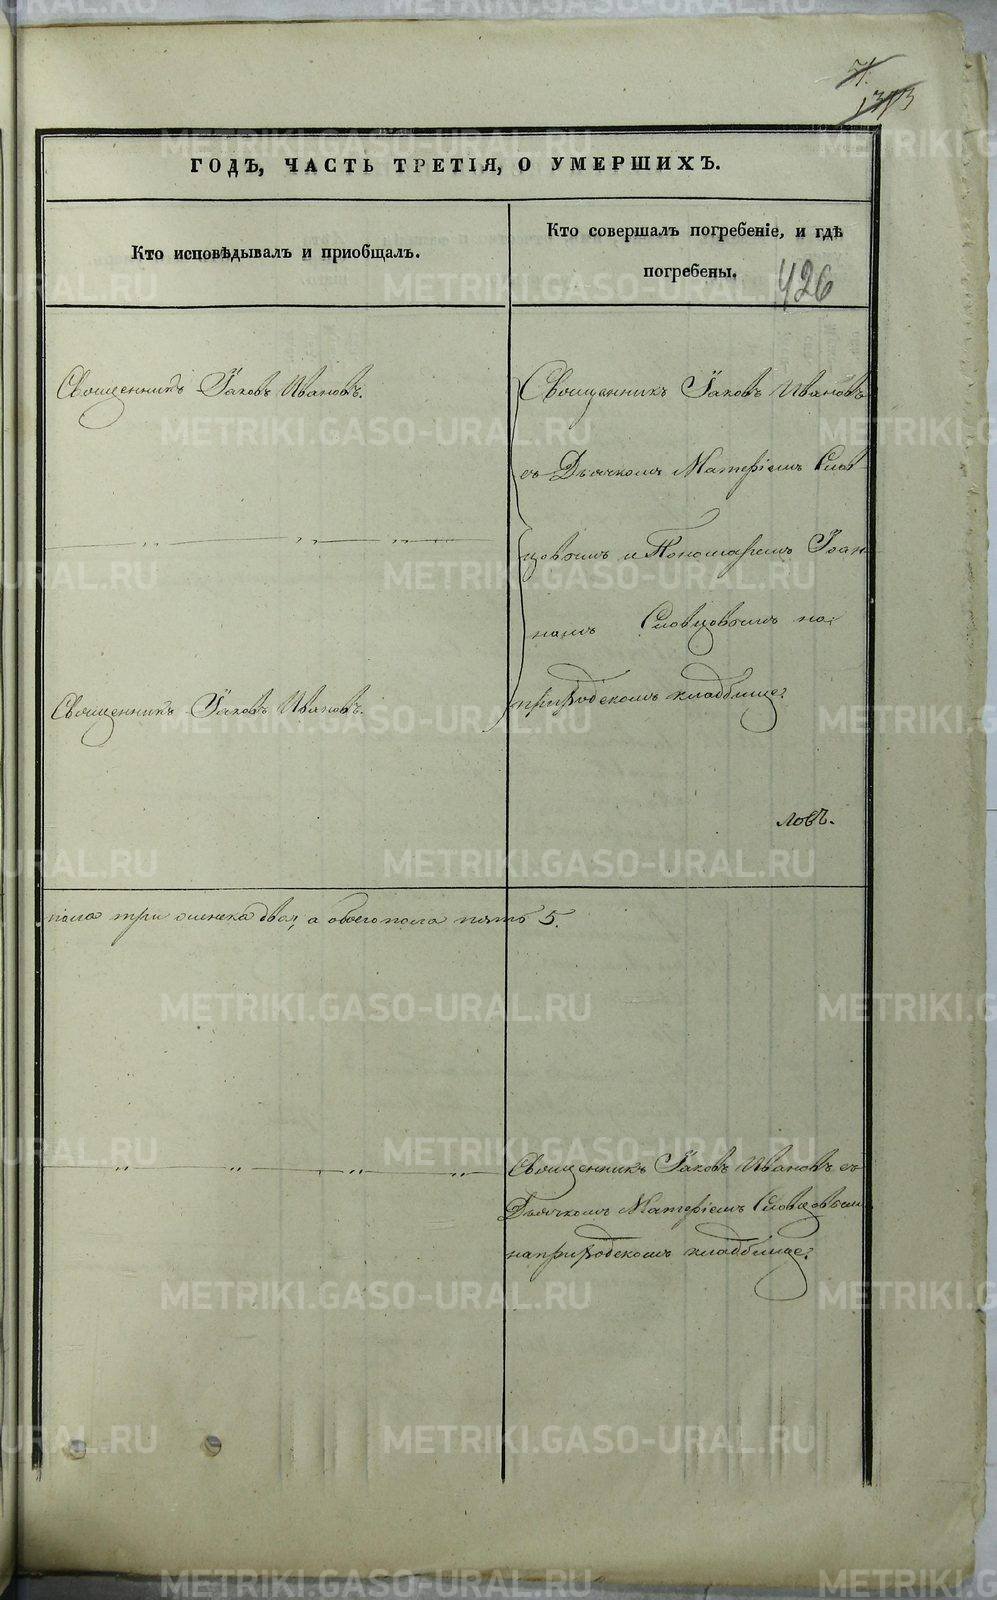 ГОДЪ, ЧАСТЬ ТРЕТІЯ, О УМЕРШИХЪ.
Кто исповѣдывалъ и пріобщалъ.
Кто совершалъ погребеніе, и гдѣ
погребены.
426
Священникъ Іаковъ Ивановъ.
Священникъ Іаковъ Ивановъ
съ Дьячкомъ Матѳіемъ Слов
цовымъ и Пономаремъ Іоан
номъ Словцовымъ на
приходскомъ кладбище
Священникъ Іаковъ Ивановъ.
ловъ.
пола три а женска два, а обоего пола пять 5.
Священникъ Іаковъ Ивановъ съ
Дьячкомъ Матѳіемъ Словцовым
на приходскомъ кладбище
METRIKI.GASO-URAL.RU